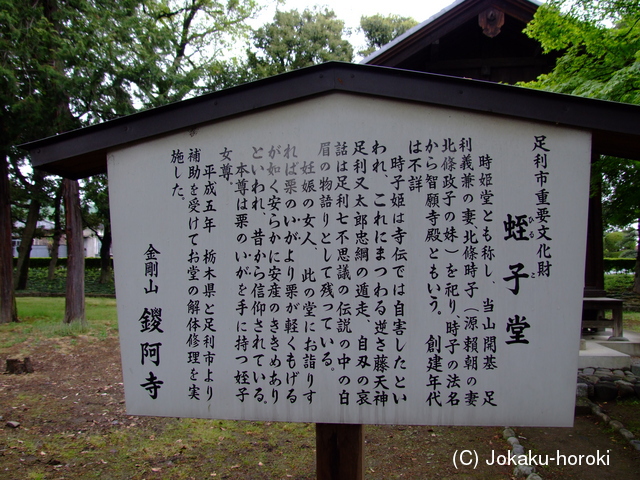 足利市重要文化財
蛭子堂
ひる こ
時姫堂とも称し、当山開基 足
利義兼の妻北條時子（源頼朝の妻
北條政子の妹）を祀り、時子の法名
から智願寺殿ともいう。 創建年代
は不詳
時子姫は寺伝では自害したとい
われ、これにまつわる逆さ藤天神
足利又太郎忠綱の遁走、自刃の哀
話は足利七不思議の伝説の中の白
眉の物語りとして残っている。
妊娠の女人、此の堂にお詣りす
れば栗のいがより栗が軽くもげる
が如く安らかに安産のききめあり
といわれ、昔から信仰されている。
本尊は栗のいがを手に持つ蛭子
女尊。
平成五年 栃木県と足利市より
補助を受けてお堂の解体修理を実
施した。
金剛山 鑁阿寺
(C)Jokaku-horoki